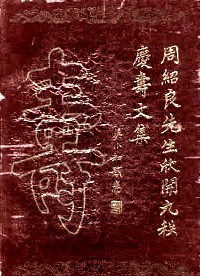 周紹良先生欣開九秩
慶壽文集
壽